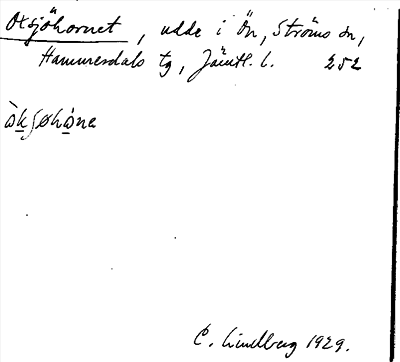 Oxsjöhornet, udde i Ön, Ströms sn,
Hammerdals tg, Jämtl. l. 252
ὼkʃøhὼne
C. Lindberg 1929.